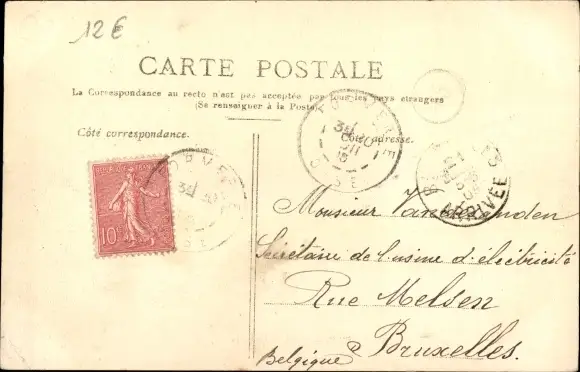 12 €
CARTE POSTALE
La Correspondance au recto n'est pas acceptée par tous les pays étrangers
(Se renseigner à la Poste)
Côté correspondance.
Côté adresse.
10c
ARRIVÉE
Monsieur
Secrétaire de l'usine d'électricité
Rue Melsen
Bruxelles.
Belgique